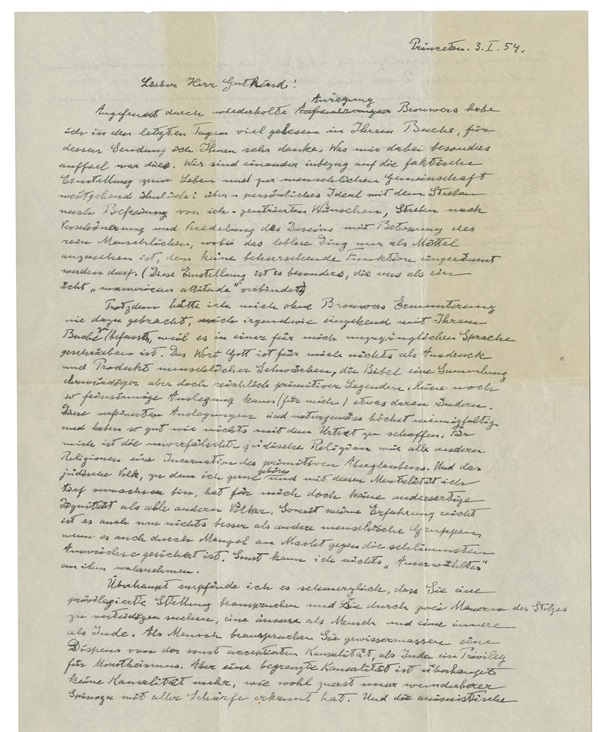 Princeton. 3. I. 54.
Lieber Herr Gutkind!
Angefeuert durch wiederholte Anregung Brouwers habe
ich in den letzten Tagen viel gelesen in Ihrem Buche, für
dessen Sendung ich Ihnen sehr danke. Was mir dabei besonders
auffiel war dies. Wir sind einander inbezug auf die faktische
Einstellung zum Leben und zur menschlichen Gemeinschaft
weitgehend ähnlich: über-persönliches Ideal mit dem Streben
nach Befreiung von ich-zentrierten Wünschen, Streben nach
Verschönerung und Veredelung des Daseins mit Betonung des
rein Menschlichen, wobei das leblose Ding nur als Mittel
anzusehen ist, dem keine beherrschende Funktion eingeräumt
werden darf. (Diese Einstellung ist es besonders, die uns als ein
echt „unamerican attitude" verbindet)
Trotzdem hätte ich mich ohne Brouwers Ermunterung
nie dazu gebracht, mich irgendwie eingehend mit Ihrem
Buche zu befassen, weil es in einer für mich unzugänglichen Sprache
geschrieben ist. Das Wort Gott ist für mich nichts als Ausdruck
und Produkt menschlicher Schwächen, die Bibel eine Sammlung
ehrwürdiger aber doch reichlich primitiver Legenden. Keine noch
so feinsinnige Auslegung kann (für mich) etwas daran ändern.
Diese verfeinerten Auslegungen sind naturgemäss höchst mannigfaltig
und haben so gut wie nichts mit dem Urtext zu schaffen. Für
mich ist die unverfälschte jüdische Religion wie alle anderen
Religionen eine Incarnation des primitiven Aberglaubens. Und das
jüdische Volk, zu dem ich gerne gehöre und mit dessen Mentalität ich
tief verwachsen bin, hat für mich doch keine andersartige
Dignität als alle anderen Völker. Soweit meine Erfahrung reicht
ist es auch um nichts besser als andere menschliche Gruppen,
wenn es auch durch Mangel an Macht gegen die schlimmsten
Auswüchse gesichert ist. Sonst kann ich nichts „Auserwähltes"
an ihm wahrnehmen.
Überhaupt empfinde ich es schmerzlich, dass Sie eine
privilegierte Stellung beanspruchen und sie durch zwei Mauern des Stolzes
zu verteidigen suchen, eine äussere als Mensch und eine innere
als Jude. Als Mensch beanspruchen Sie gewissermassen eine
Dispens von der sonst acceptierten Kausalität, als Jude ein Privileg
für Monotheismus. Aber eine begrenzte Kausalität ist überhaupt
keine Kausalität mehr, wie wohl zuerst unser wunderbarer
Spinoza mit aller Schärfe erkannt hat. Und die animistische